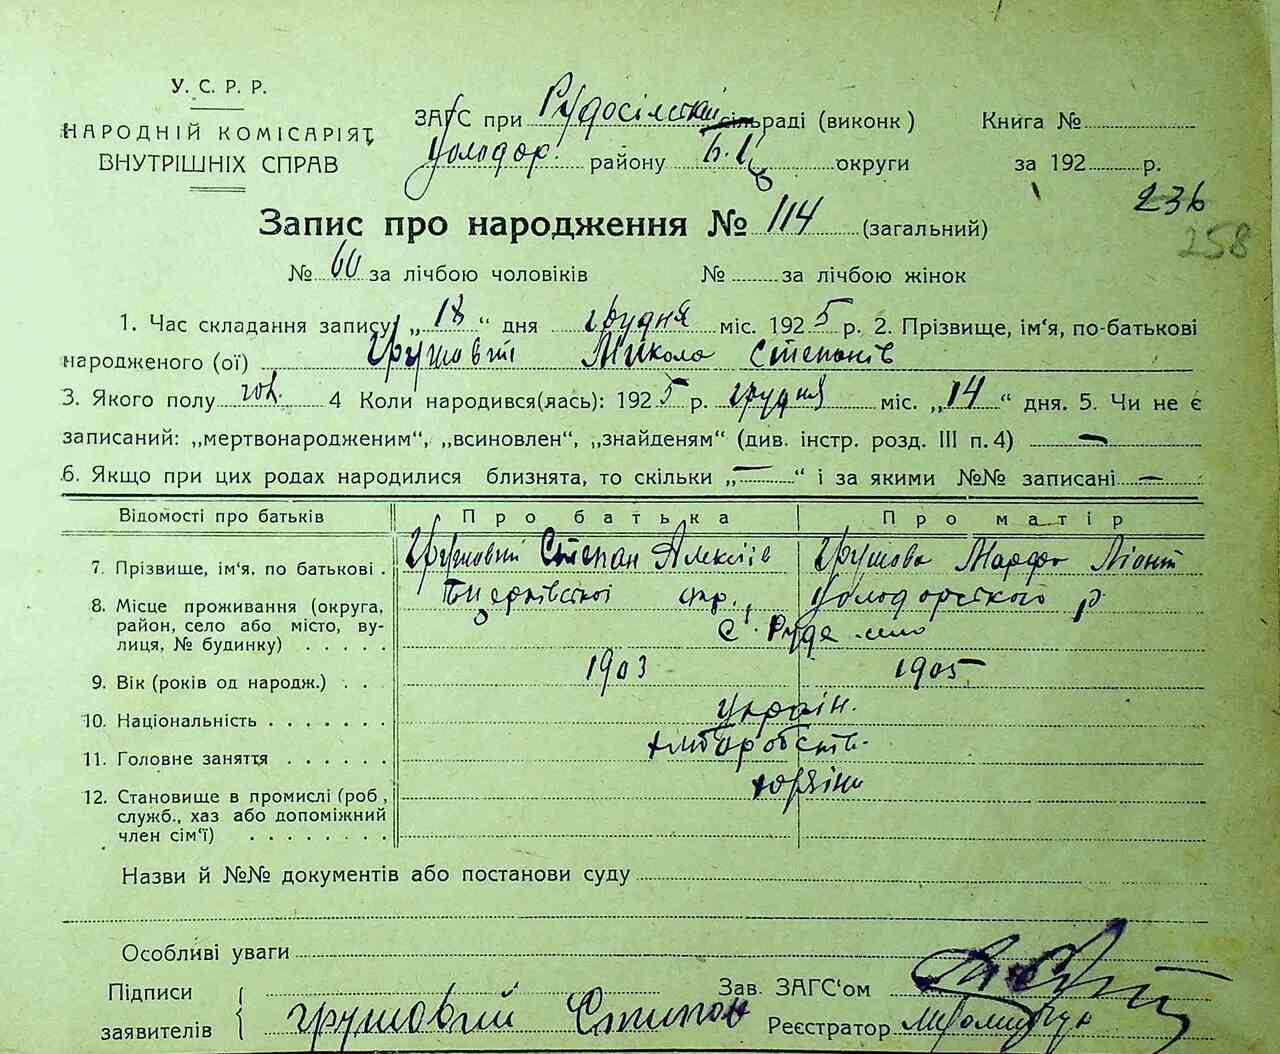 У. С. Р. Р.
НАРОДНІЙ КОМІСАРІЯТ
ВНУТРІШНІХ СПРАВ
ЗАГС при Рудосільскій сільраді (виконк)
Володор. району Б.Ц. округи
Книга №
за 192 р.
236
258
Запис про народження № 114 (загальний)
№ 60 за лічбою чоловіків № за лічбою жінок
1. Час складання запису „ 18 “ дня грудня міс. 1925 р. 2. Прізвище, ім‘я, по-батькові
народженого (ої) Грушовий Микола Степанів
3. Якого полу чол. 4 Коли народився(лась): 1925 р. грудня міс. „ 14 “ дня. 5. Чи не є
записаний: „мертвонародженим“, „всиновлен“, „знайденям“ (див. інстр. розд. III п. 4) —
6. Якщо при цих родах народилися близнята, то скільки „ — “ і за якими №№ записані —
Відомості про батьків Про батька Про матір
7. Прізвище, ім‘я, по батькові . Грушовий Степан Алексіїв Грушова Марфа Ліонт
8. Місце проживання (округа, район, село або місто, вулиця, № будинку) . . . . . Білоцерківської окр., Володорського р
с. Руде село
9. Вік (років од народж.) . . . 1903 1905
10. Національність . . . . . . . україн.
11. Головне заняття . . . . . . хліборобств.
12. Становище в промислі (роб, служб., хаз або допоміжний член сім‘ї) . . . . . . . .
Назви й №№ документів або постанови суду
Особливі уваги
Підписи
заявителів Грушовий Степан
Зав. ЗАГС‘ом
Реєстратор